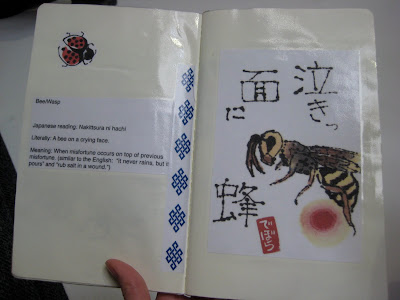 Bee/Wasp
Japanese reading: Nakittsura ni hachi
Literally: A bee on a crying face.
Meaning: When misfortune occurs on top of previous
misfortune. (similar to the English: "it never rains, but it
pours" and "rub salt in a wound.")
泣きっ
面に
蜂